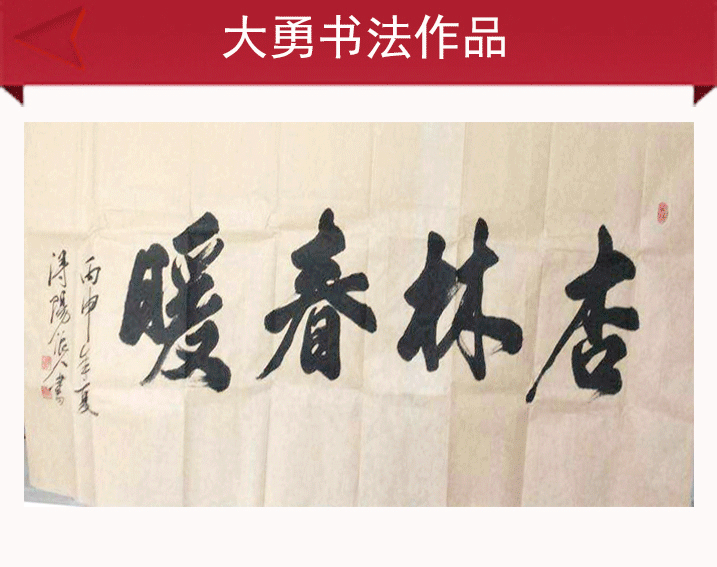 大勇书法作品
杏林春暖
丙申年夏
浔陽
人書